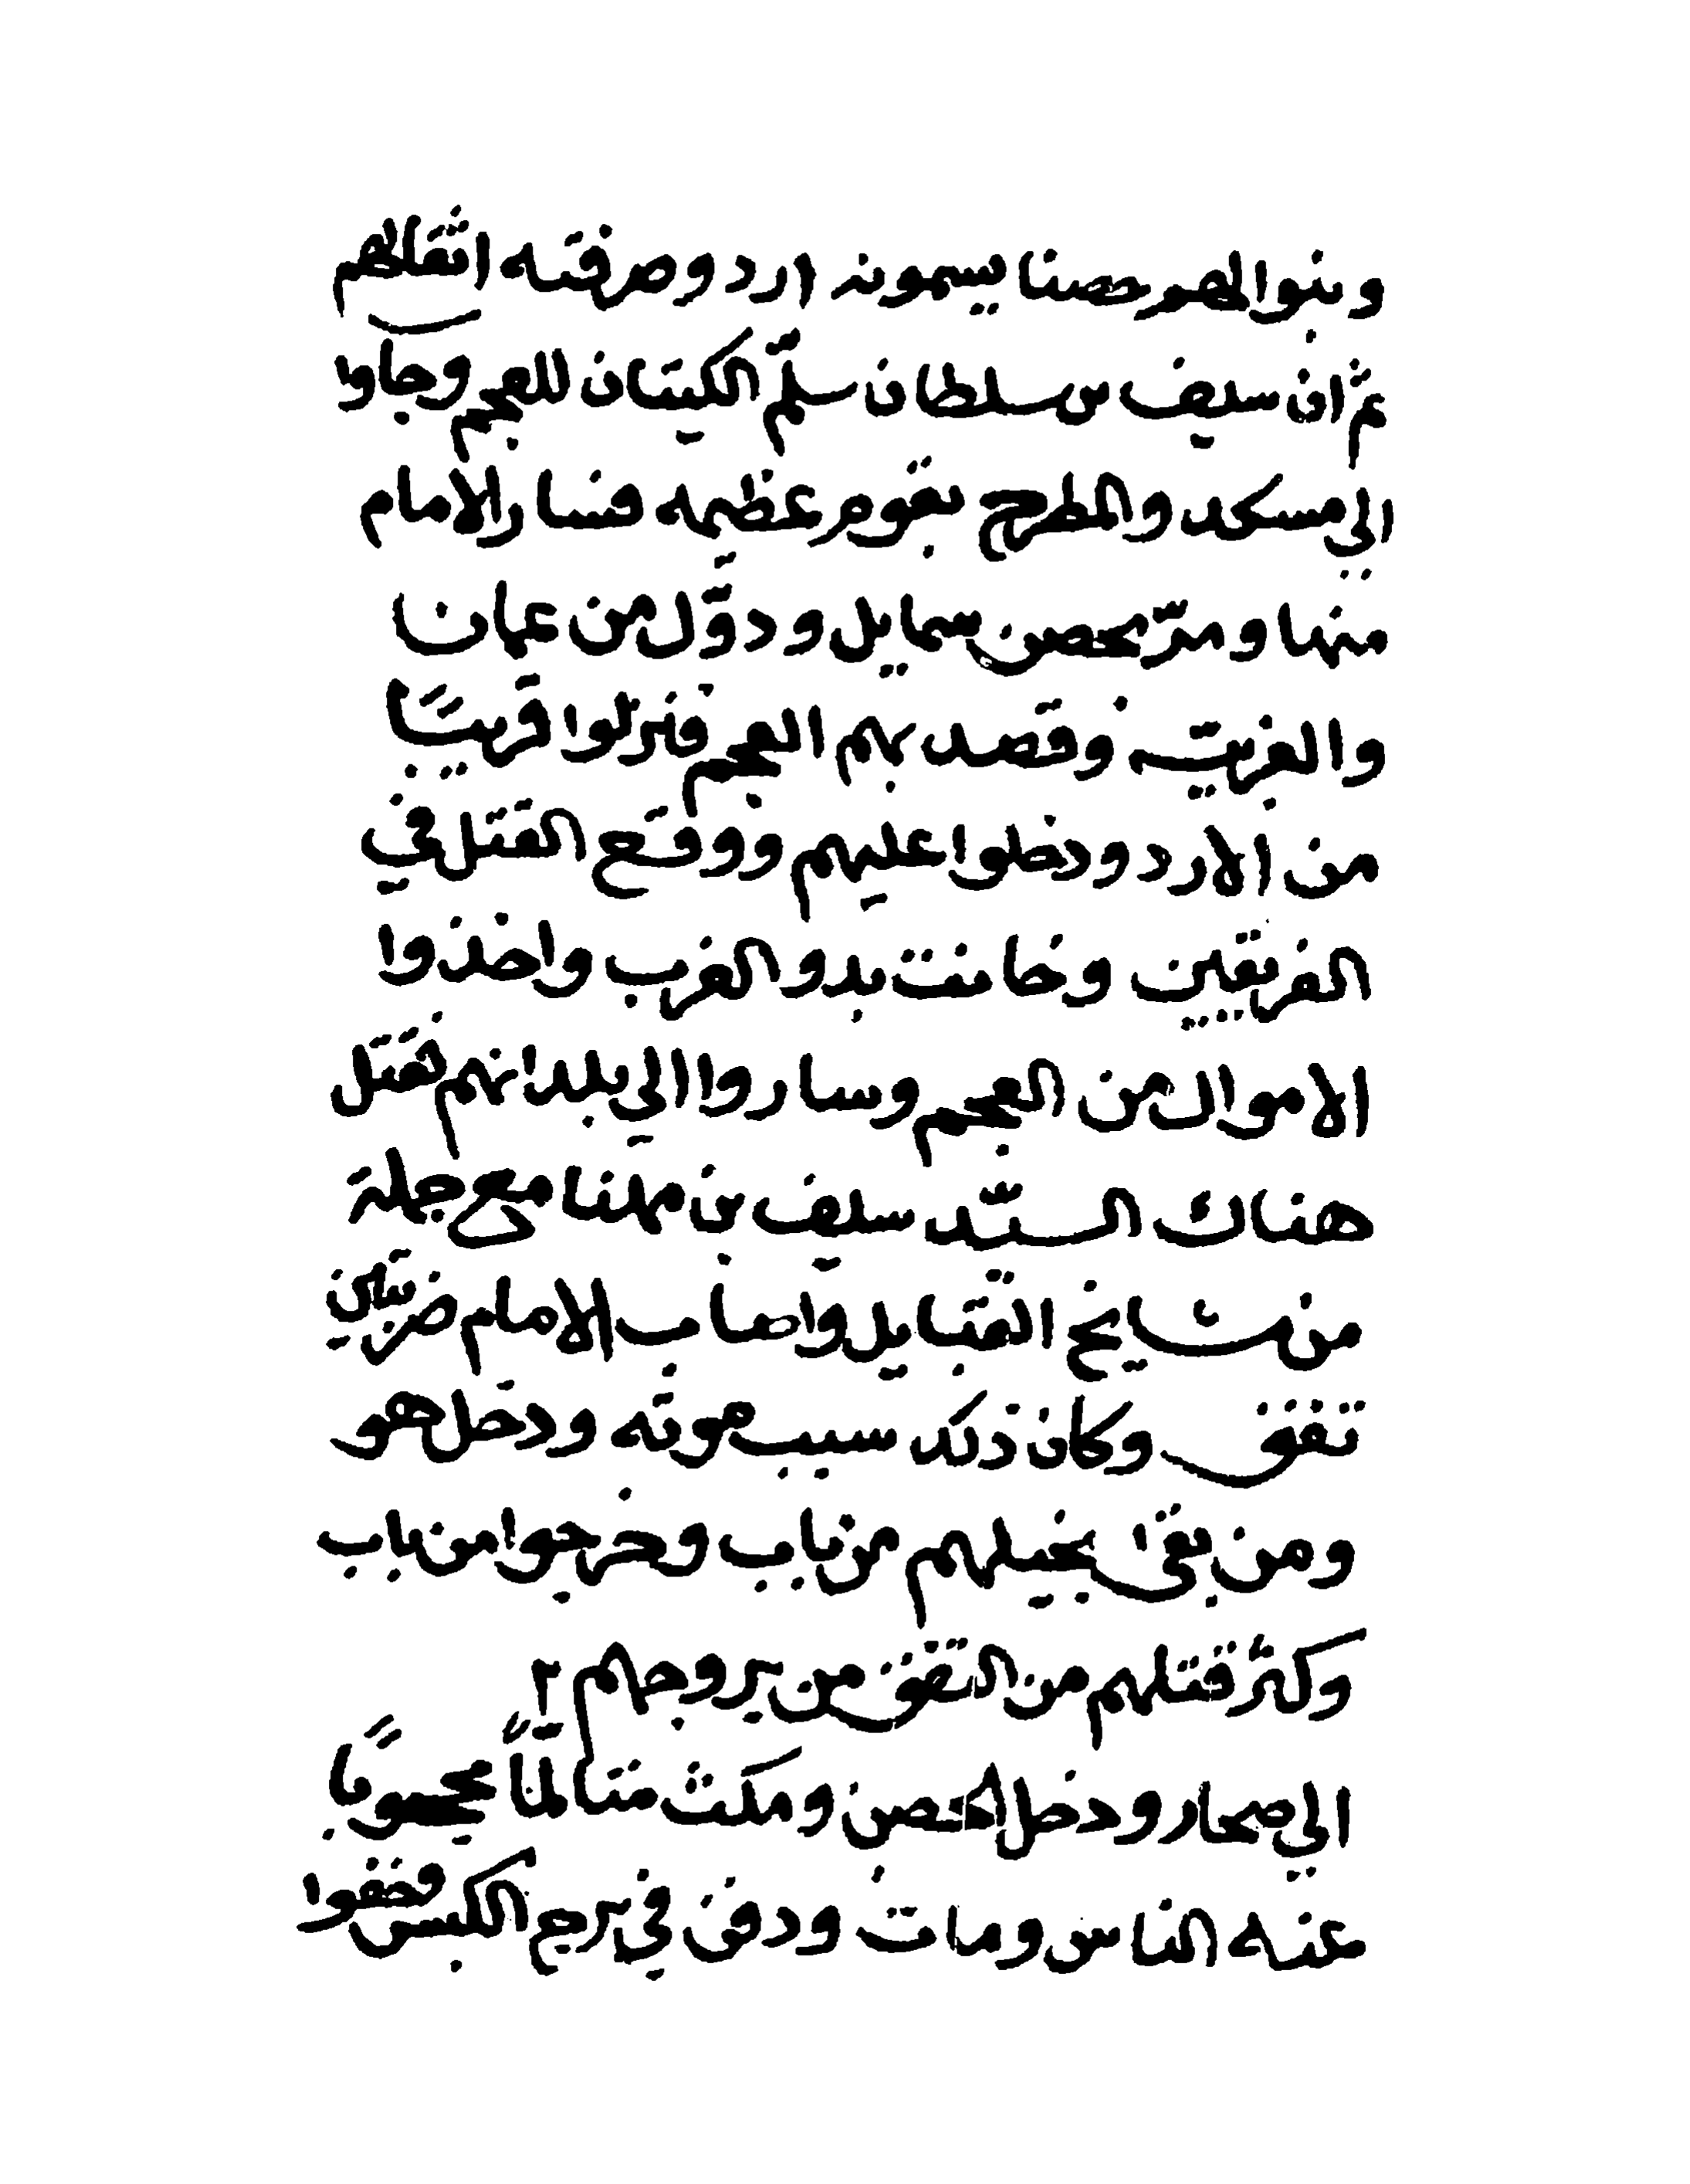 وبنوا لهم حصنا يسمونه اردو صرفته اثقالهم
ثم ان سيف بن سلطان سلّم الكيتان للعجم وجاوا
الي مسكد والمطرح بقوم عظيمه فسار الامام
منها ومرّ بحصن سمايل ودوّل من عمان
والغربيّه وقصد بهم العجم فنزلوا قريبًا
من الاردو ودخلوا عليهم ووقع القتل في
الفريقين وخانت بدو الغرب واخذوا
الاموال من العجم وساروا الي بلدانهم فقتل
هناك السيّد سيف بن مهنا مع جملة
من مشايخ القبايل واصاب الامام ضربتين
تفق وكان ذلك سبب موته ودخل هو
ومن بقي بخيلهم من باب وخرجوا من باب
وكثر قتلهم من التفق من بروجهم
الي صحار ودخل الحصن ومكث متالمًا محجوبًا
عنه الناس ومات ودفن في برج الكبس فخفوا